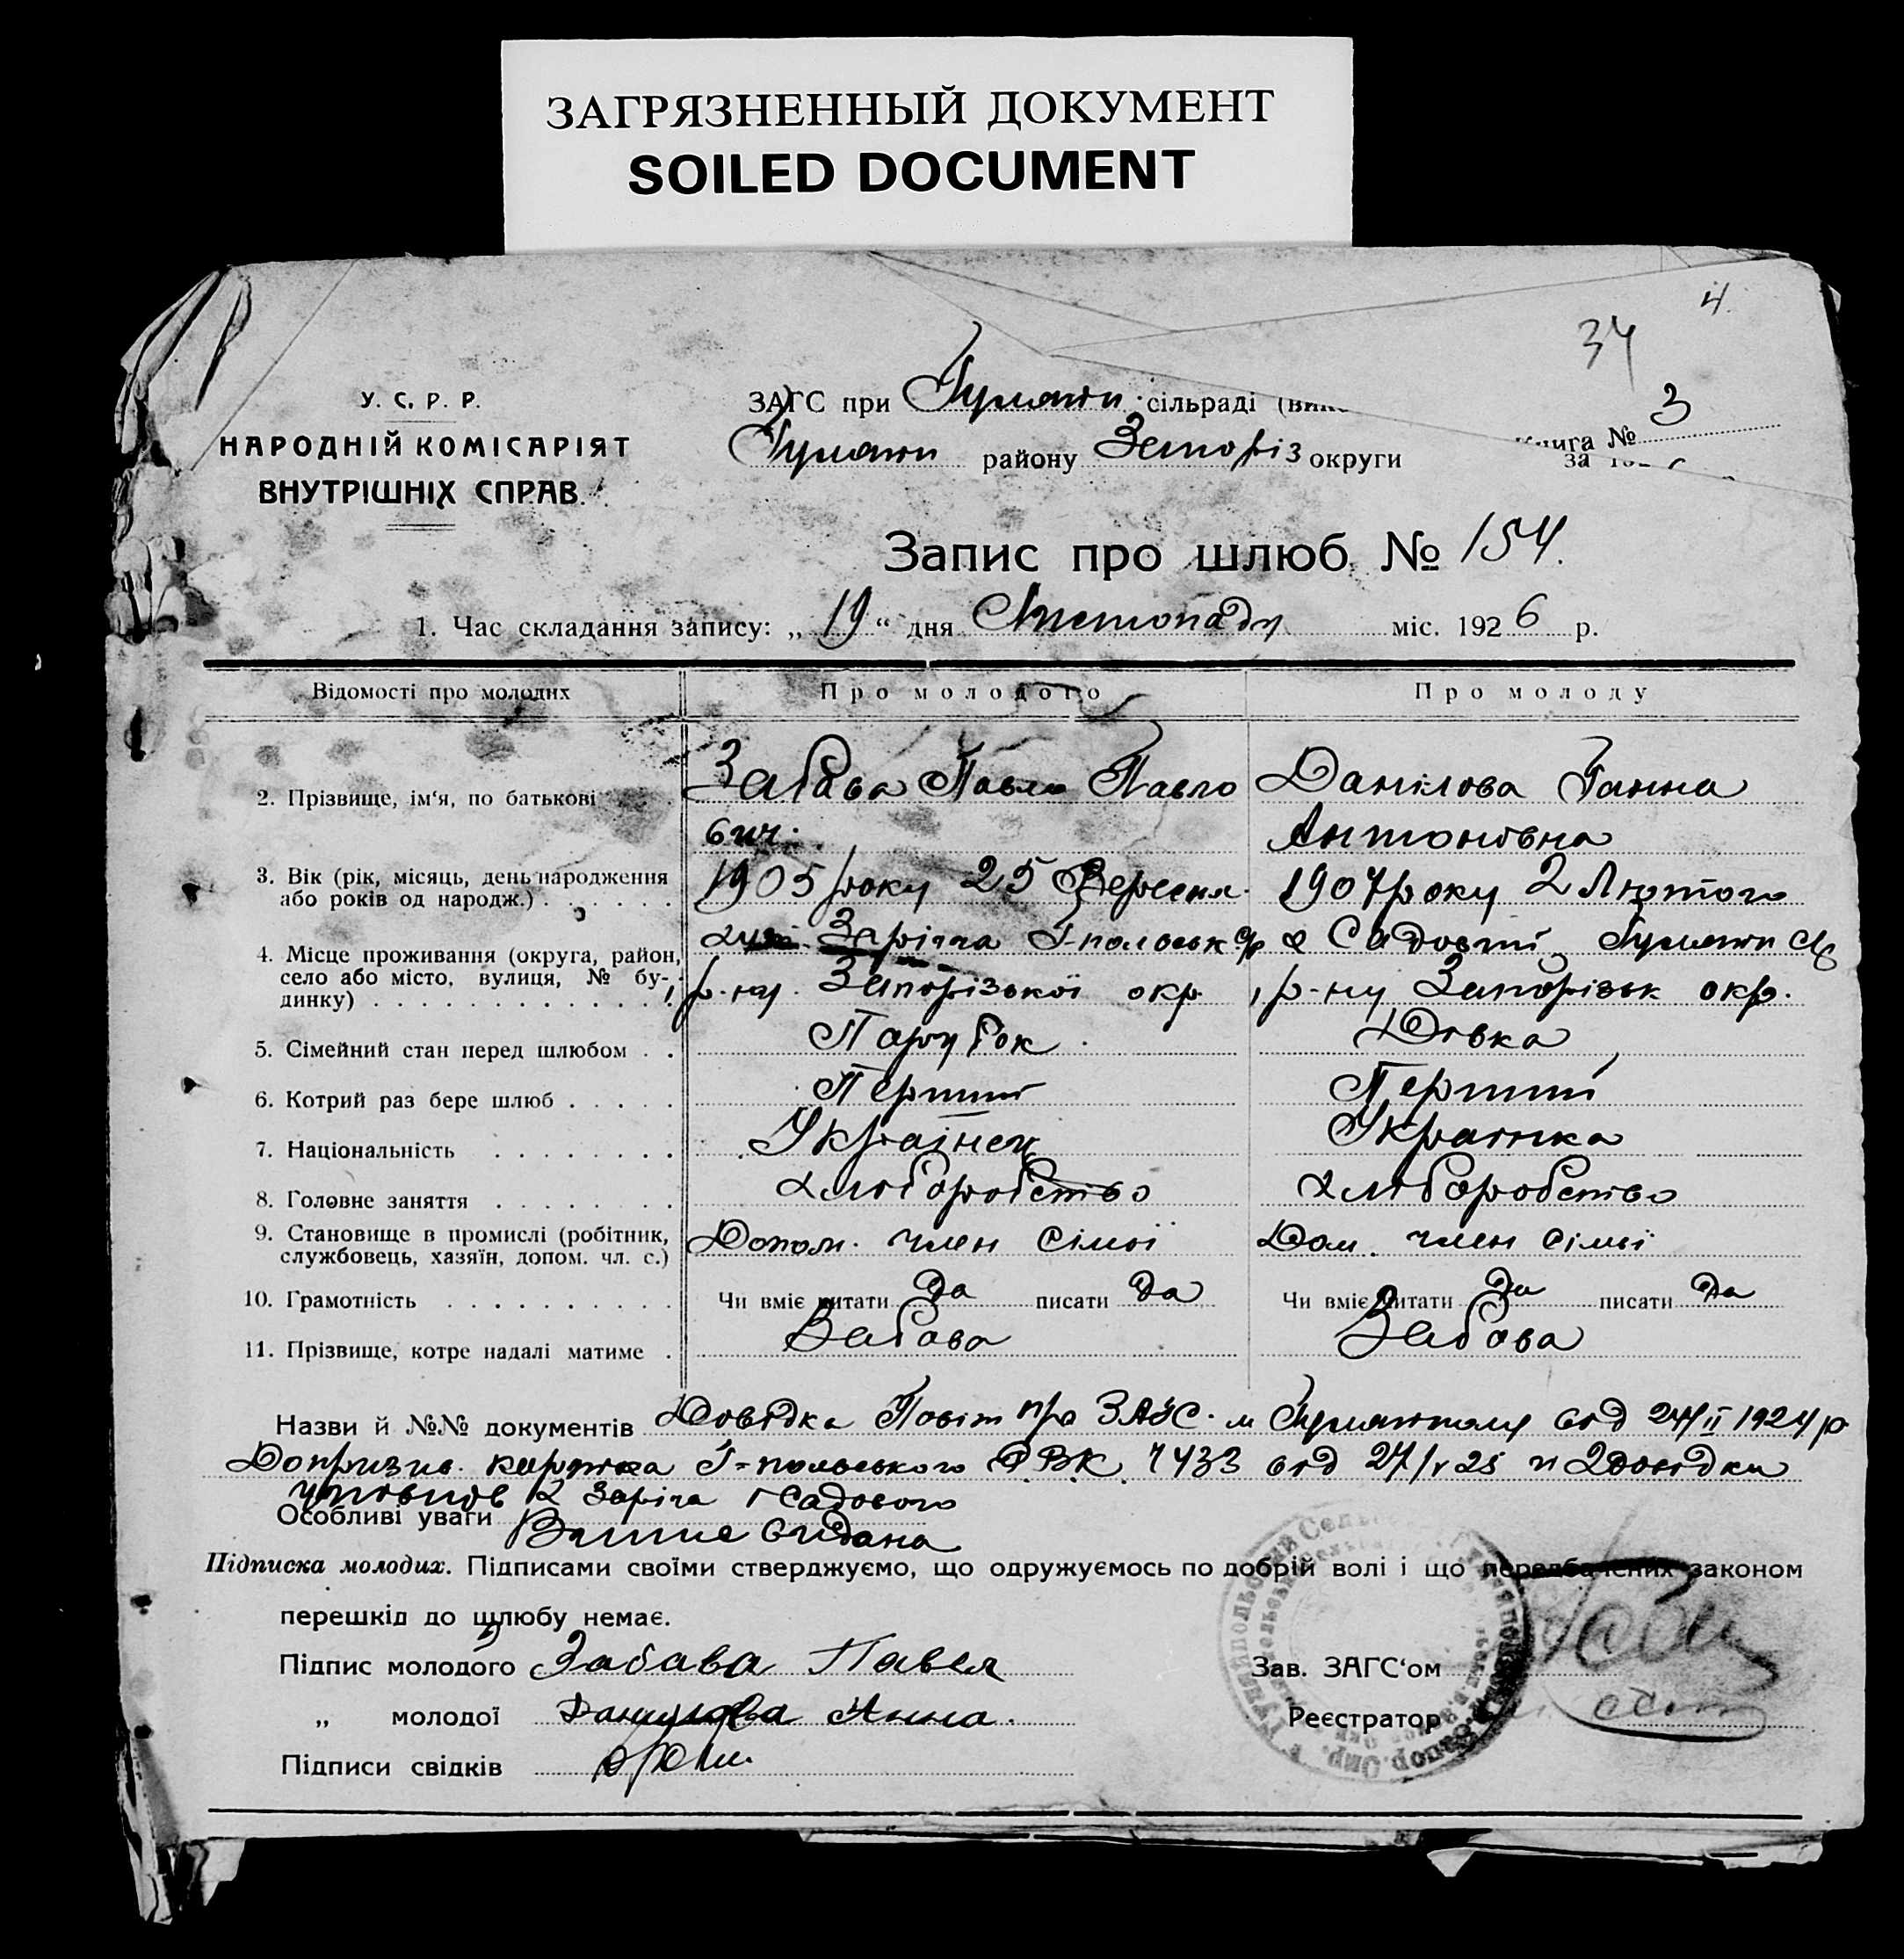 ЗАГРЯЗНЕННЫЙ ДОКУМЕНТ
SOILED DOCUMENT
4.
34
У. С. Р. Р.
НАРОДНІЙ КОМІСАРІЯТ
ВНУТРІШНІХ СПРАВ.
ЗАГС при сільраді
району Запоріз округи
Книга № 3
за
Запис про шлюб № 154.
1. Час складання запису: „ 19 “ дня Листопаду міс. 1926 р.
Відомості про молодих Про молодого Про молоду
2. Прізвище, ім‘я, по батькові Забава Павло Павло Данілова Ганна
вич. Антоновна
3. Вік (рік, місяць, день народження 1905 року 25 Вересня 1907 року 2 Лютого
або років од народж.)
4. Місце проживання (округа, район, Заріччя Г-польськ Садовий
село або місто, вулиця, № бу- р-ну Запорізької окр. р-ну Запорізьк окр.
динку)
5. Сімейний стан перед шлюбом Парубок Дівка
6. Котрий раз бере шлюб Перший Перший
7. Національність Українец Украінка
8. Головне заняття хліборобство хліборобство
9. Становище в промислі (робітник, Допом. член сімьї Дом. член сімьї
службовець, хазяїн, допом. чл. с.)
10. Грамотність Чи вміє читати да писати да Чи вміє читати да писати да
11. Прізвище, котре надалі матиме Забава Забава
Назви й №№ документів Довідка Повіт ЗАГС. від 24/II 1924 р
Допризив. картка Г-польського Р.В.К. від 25 и 2 довідки
Заріча Садового
Особливі уваги видана
Підписка молодих. Підписами своїми стверджуємо, що одружуємось по добрій волі і що передбачених законом
перешкід до шлюбу немає.
Підпис молодого Забава Павел
„ молодої Данилова Анна.
Підписи свідків
Зав. ЗАГС‘ом
Реєстратор